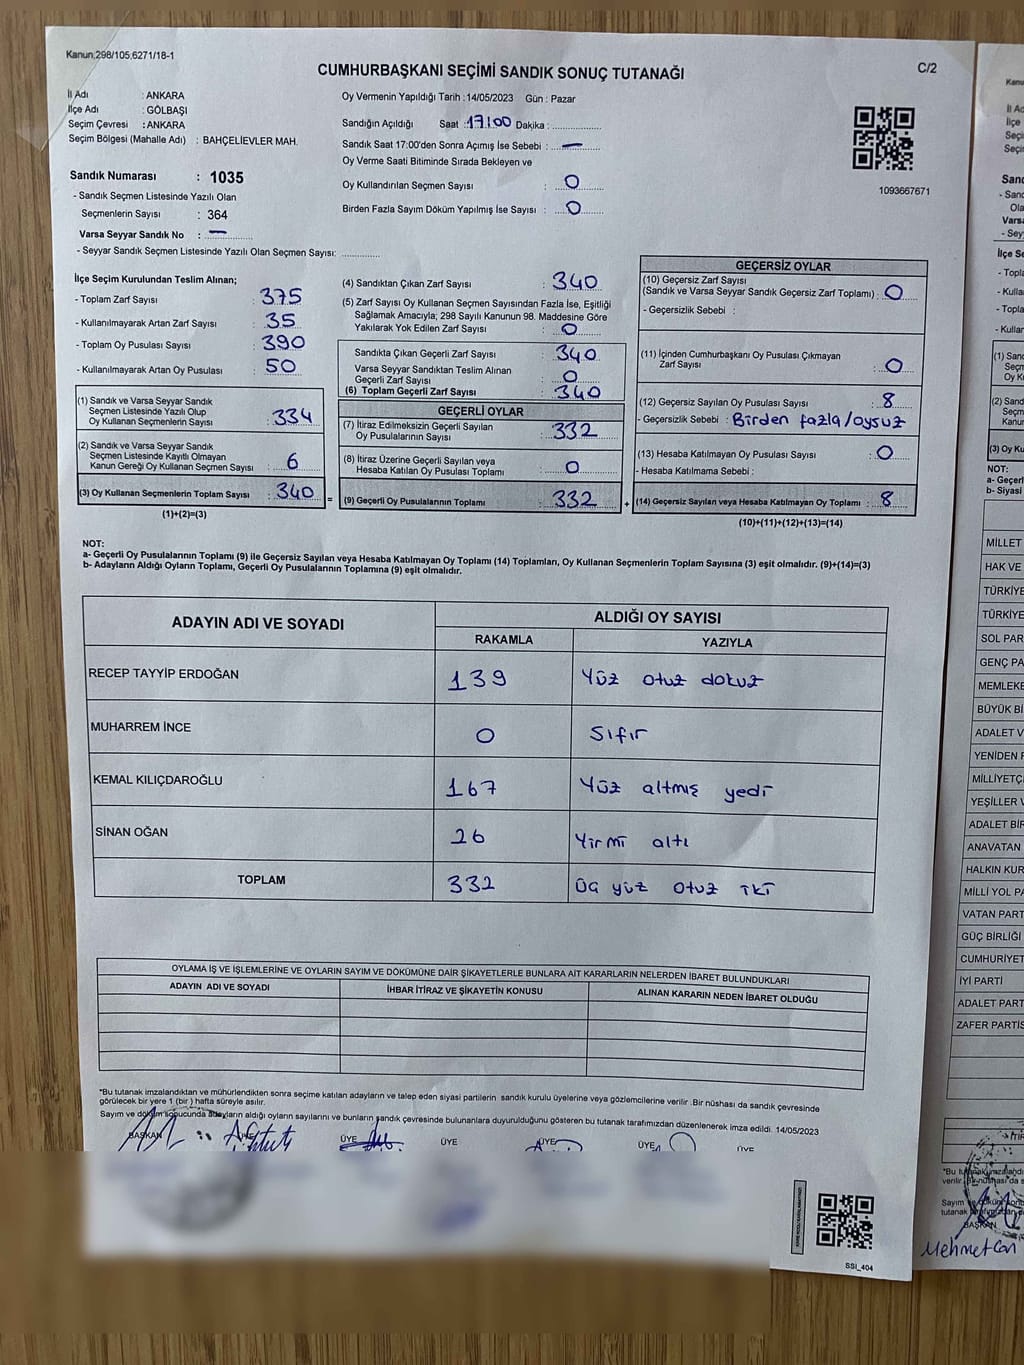 Kanun,298/105,6271/18-1
C/2
CUMHURBAŞKANI SEÇİMİ SANDIK SONUÇ TUTANAĞI
İl Adı : ANKARA
İlçe Adı : GÖLBAŞI
Seçim Çevresi : ANKARA
Seçim Bölgesi (Mahalle Adı) : BAHÇELİEVLER MAH.
Sandık Numarası : 1035
- Sandık Seçmen Listesinde Yazılı Olan
Seçmenlerin Sayısı : 364
Varsa Seyyar Sandık No : —
- Seyyar Sandık Seçmen Listesinde Yazılı Olan Seçmen Sayısı: ............
Oy Vermenin Yapıldığı Tarih :14/05/2023 Gün : Pazar
Sandığın Açıldığı Saat :17:00 Dakika : ....................
Sandık Saat 17:00'den Sonra Açımış İse Sebebi : —
Oy Verme Saati Bitiminde Sırada Bekleyen ve
Oy Kullandırılan Seçmen Sayısı : 0
Birden Fazla Sayım Döküm Yapılmış İse Sayısı : 0
1093667671
İlçe Seçim Kurulundan Teslim Alınan;
- Toplam Zarf Sayısı : 375
- Kullanılmayarak Artan Zarf Sayısı : 35
- Toplam Oy Pusulası Sayısı : 390
- Kullanılmayarak Artan Oy Pusulası : 50
(1) Sandık ve Varsa Seyyar Sandık
Seçmen Listesinde Yazılı Olup
Oy Kullanan Seçmenlerin Sayısı : 334
(2) Sandık ve Varsa Seyyar Sandık
Seçmen Listesinde Kayıtlı Olmayan
Kanun Gereği Oy Kullanan Seçmen Sayısı : 6
(3) Oy Kullanan Seçmenlerin Toplam Sayısı : 340
(1)+(2)=(3)
=
(4) Sandıktan Çıkan Zarf Sayısı : 340
(5) Zarf Sayısı Oy Kullanan Seçmen Sayısından Fazla İse, Eşitliği
Sağlamak Amacıyla; 298 Sayılı Kanunun 98. Maddesine Göre
Yakılarak Yok Edilen Zarf Sayısı : 0
Sandıkta Çıkan Geçerli Zarf Sayısı : 340
Varsa Seyyar Sandıktan Teslim Alınan
Geçerli Zarf Sayısı : 0
(6) Toplam Geçerli Zarf Sayısı : 340
GEÇERLİ OYLAR
(7) İtiraz Edilmeksizin Geçerli Sayılan
Oy Pusulalarının Sayısı : 332
(8) İtiraz Üzerine Geçerli Sayılan veya
Hesaba Katılan Oy Pusulası Toplamı : 0
(9) Geçerli Oy Pusulalarının Toplamı : 332
+
GEÇERSİZ OYLAR
(10) Geçersiz Zarf Sayısı
(Sandık ve Varsa Seyyar Sandık Geçersiz Zarf Toplamı) : 0
- Geçersizlik Sebebi :
(11) İçinden Cumhurbaşkanı Oy Pusulası Çıkmayan
Zarf Sayısı : 0
(12) Geçersiz Sayılan Oy Pusulası Sayısı : 8
- Geçersizlik Sebebi : Birden fazla/oysuz
(13) Hesaba Katılmayan Oy Pusulası Sayısı : 0
- Hesaba Katılmama Sebebi :
(14) Geçersiz Sayılan veya Hesaba Katılmayan Oy Toplamı : 8
(10)+(11)+(12)+(13)=(14)
NOT:
a- Geçerli Oy Pusulalarının Toplamı (9) ile Geçersiz Sayılan veya Hesaba Katılmayan Oy Toplamı (14) Toplamları, Oy Kullanan Seçmenlerin Toplam Sayısına (3) eşit olmalıdır. (9)+(14)=(3)
b- Adayların Aldığı Oyların Toplamı, Geçerli Oy Pusulalarının Toplamına (9) eşit olmalıdır.
ADAYIN ADI VE SOYADI
ALDIĞI OY SAYISI
RAKAMLA YAZIYLA
RECEP TAYYİP ERDOĞAN 139 Yüz otuz dokuz
MUHARREM İNCE 0 Sıfır
KEMAL KILIÇDAROĞLU 167 Yüz altmış yedi
SİNAN OĞAN 26 Yirmi altı
TOPLAM 332 Üç yüz otuz iki
OYLAMA İŞ VE İŞLEMLERİNE VE OYLARIN SAYIM VE DÖKÜMÜNE DAİR ŞİKAYETLERLE BUNLARA AİT KARARLARIN NELERDEN İBARET BULUNDUKLARI
ADAYIN ADI VE SOYADI İHBAR İTİRAZ VE ŞİKAYETİN KONUSU ALINAN KARARIN NEDEN İBARET OLDUĞU
*Bu tutanak imzalandıktan ve mühürlendikten sonra seçime katılan adayların ve talep eden siyasi partilerin sandık kurulu üyelerine veya gözlemcilerine verilir .Bir nüshası da sandık çevresinde
görülecek bir yere 1 (bir ) hafta süreyle asılır.
Sayım ve döküm sonucunda adayların aldığı oyların sayılarını ve bunların sandık çevresinde bulunanlara duyurulduğunu gösteren bu tutanak tarafımızdan düzenlenerek imza edildi. 14/05/2023
BAŞKAN ÜYE ÜYE ÜYE ÜYE ÜYE ÜYE
SSİ_404
Kanu
İl Ad
İlçe
Seçi
Seçi
Sand
- Sand
Ola
Varsa
- Sey
İlçe Se
- Topla
- Kulla
- Topla
- Kullan
(1) Sand
Seçm
Oy Ku
(2) Sand
Seçm
Kanun
(3) Oy Ku
NOT:
a- Geçerl
b- Siyasi
MİLLET
HAK VE
TÜRKİYE
TÜRKİYE
SOL PAR
GENÇ PA
MEMLEKE
BÜYÜK Bİ
ADALET V
YENİDEN R
MİLLİYETÇİ
YEŞİLLER V
ADALET BİR
ANAVATAN
HALKIN KUR
MİLLİ YOL PA
VATAN PART
GÜÇ BİRLİĞİ
CUMHURİYET
İYİ PARTİ
ADALET PART
ZAFER PARTİS
*Bu
verilir
Sayım
tutanak
BAŞKAN
Mehmet Can